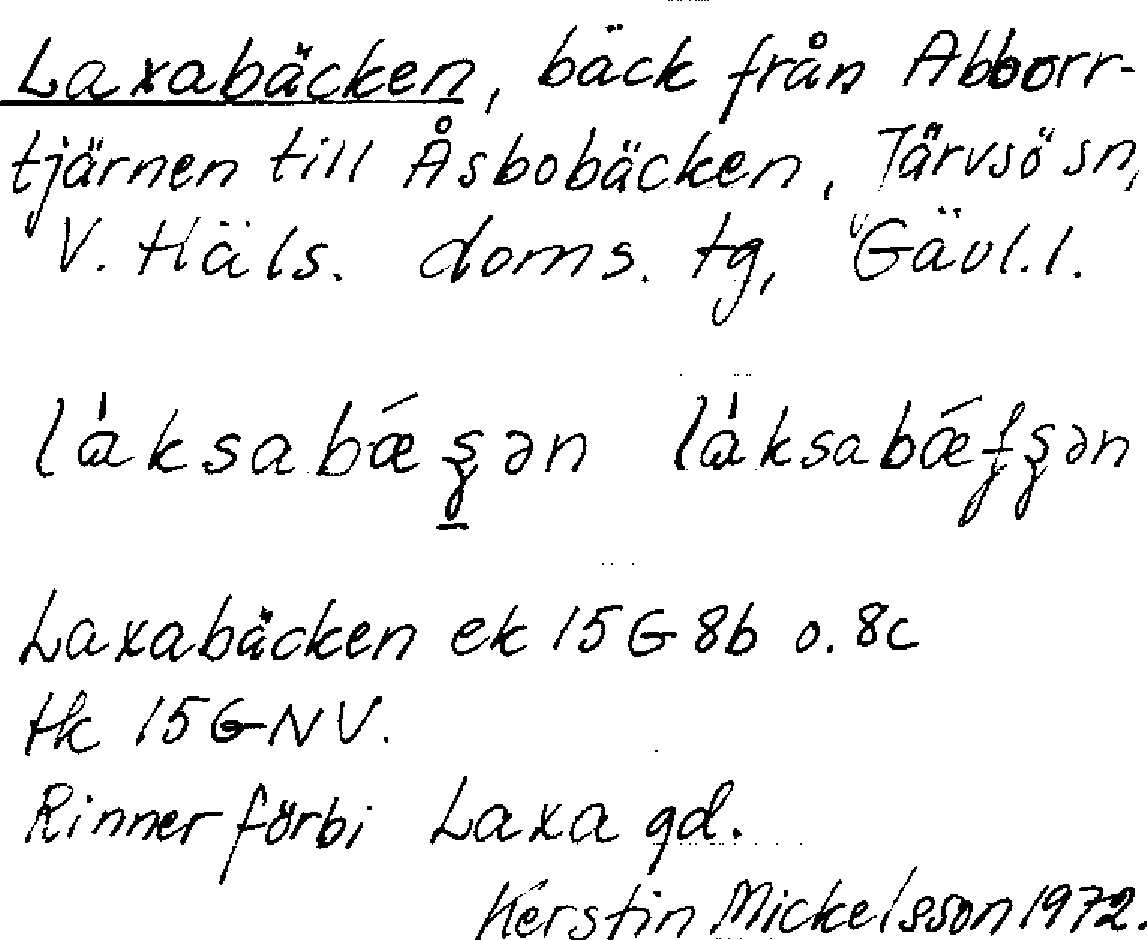 Laxabäcken, bäck från Abborr-
tjärnen till Åsbobäcken, Järvsö sn,
V. Häls. doms. tg, Gävl.l.
Laxabäcken ek 15G 8b o. 8c
tk 15G NV.
Rinner förbi Laxa gd.
Kerstin Mickelsson 1972.